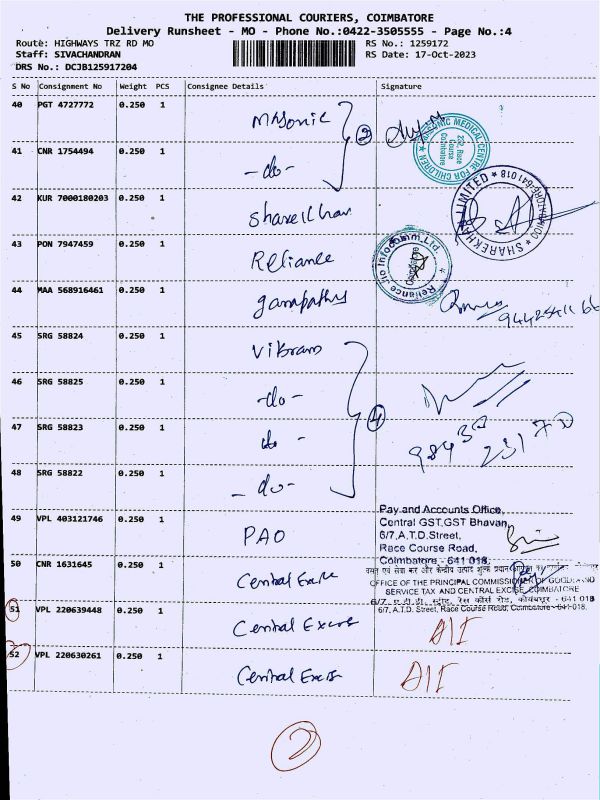 THE PROFESSIONAL COURIERS, COIMBATORE
Delivery Runsheet - MO - Phone No.:0422-3505555 - Page No.:4
Route: HIGHWAYS TRZ RD MO RS No.: 1259172
Staff: SIVACHANDRAN RS Date: 17-Oct-2023
DRS No.: DCJB125917204
S No Consignment No Weight PCS Consignee Details Signature
40 PGT 4727772 0.250 1 Masonic 2
MASONIC MEDICAL CENTRE FOR CHILDREN
232, Race Course Coimbatore
41 CNR 1754494 0.250 1 -do-
42 KUR 7000180203 0.250 1 Sharekhan
SHAREKHAN LIMITED * COIMBATORE-641018 *
43 PON 7947459 0.250 1 Reliance
Reliance Jio Infocomm Ltd
Coimbatore
44 MAA 568916461 0.250 1 ganapathy
45 SRG 58824 0.250 1 Vikram
46 SRG 58825 0.250 1 -do-
4
47 SRG 58823 0.250 1 do -
48 SRG 58822 0.250 1 - do-
49 VPL 403121746 0.250 1 PAO
Pay and Accounts Office,
Central GST,GST Bhavan,
6/7,A.T.D.Street,
Race Course Road,
Coimbatore - 641 018.
50 CNR 1631645 0.250 1 Central Excise
OFFICE OF THE PRINCIPAL COMMISSIONER OF GOODS AND
SERVICE TAX AND CENTRAL EXCISE, COIMBATORE
6/7, ए.टी.डी. स्ट्रीट, रेस कोर्स रोड, कोयंबत्तूर - 641 018
6/7, A.T.D. Street, Race Course Road, Coimbatore-641-018.
51 VPL 220639448 0.250 1 Central Excise
52 VPL 220630261 0.250 1 Central Excise
2